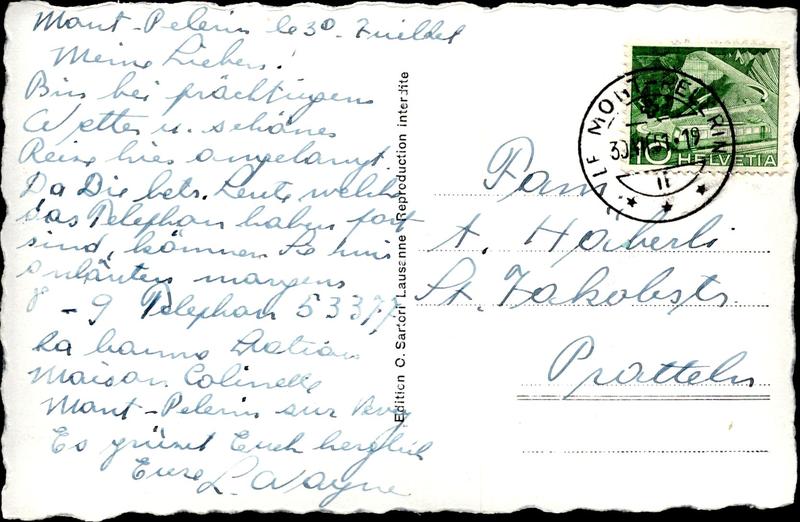 Mont-Pelerin le 30. Juillet
Meine Lieben!
Bin bei prächtigem
Wetter u. schönes
Reise hier angelangt
Da Die betr. Leute welche
das Telephon haben fort
sind, können Sie mir
anläuten morgens
8 - 9 Telephon 53377
La bonne Station
Maison Colinette
Mont-Pelerin sur Vevey
Es grüsst Euch herzlich
Eure L. Wayne
Edition O. Sartori Lausanne Reproduction interdite
MONT PELERIN
10 HELVETIA
Fam.
A. Häberli
St. Jakobstr.
Pratteln